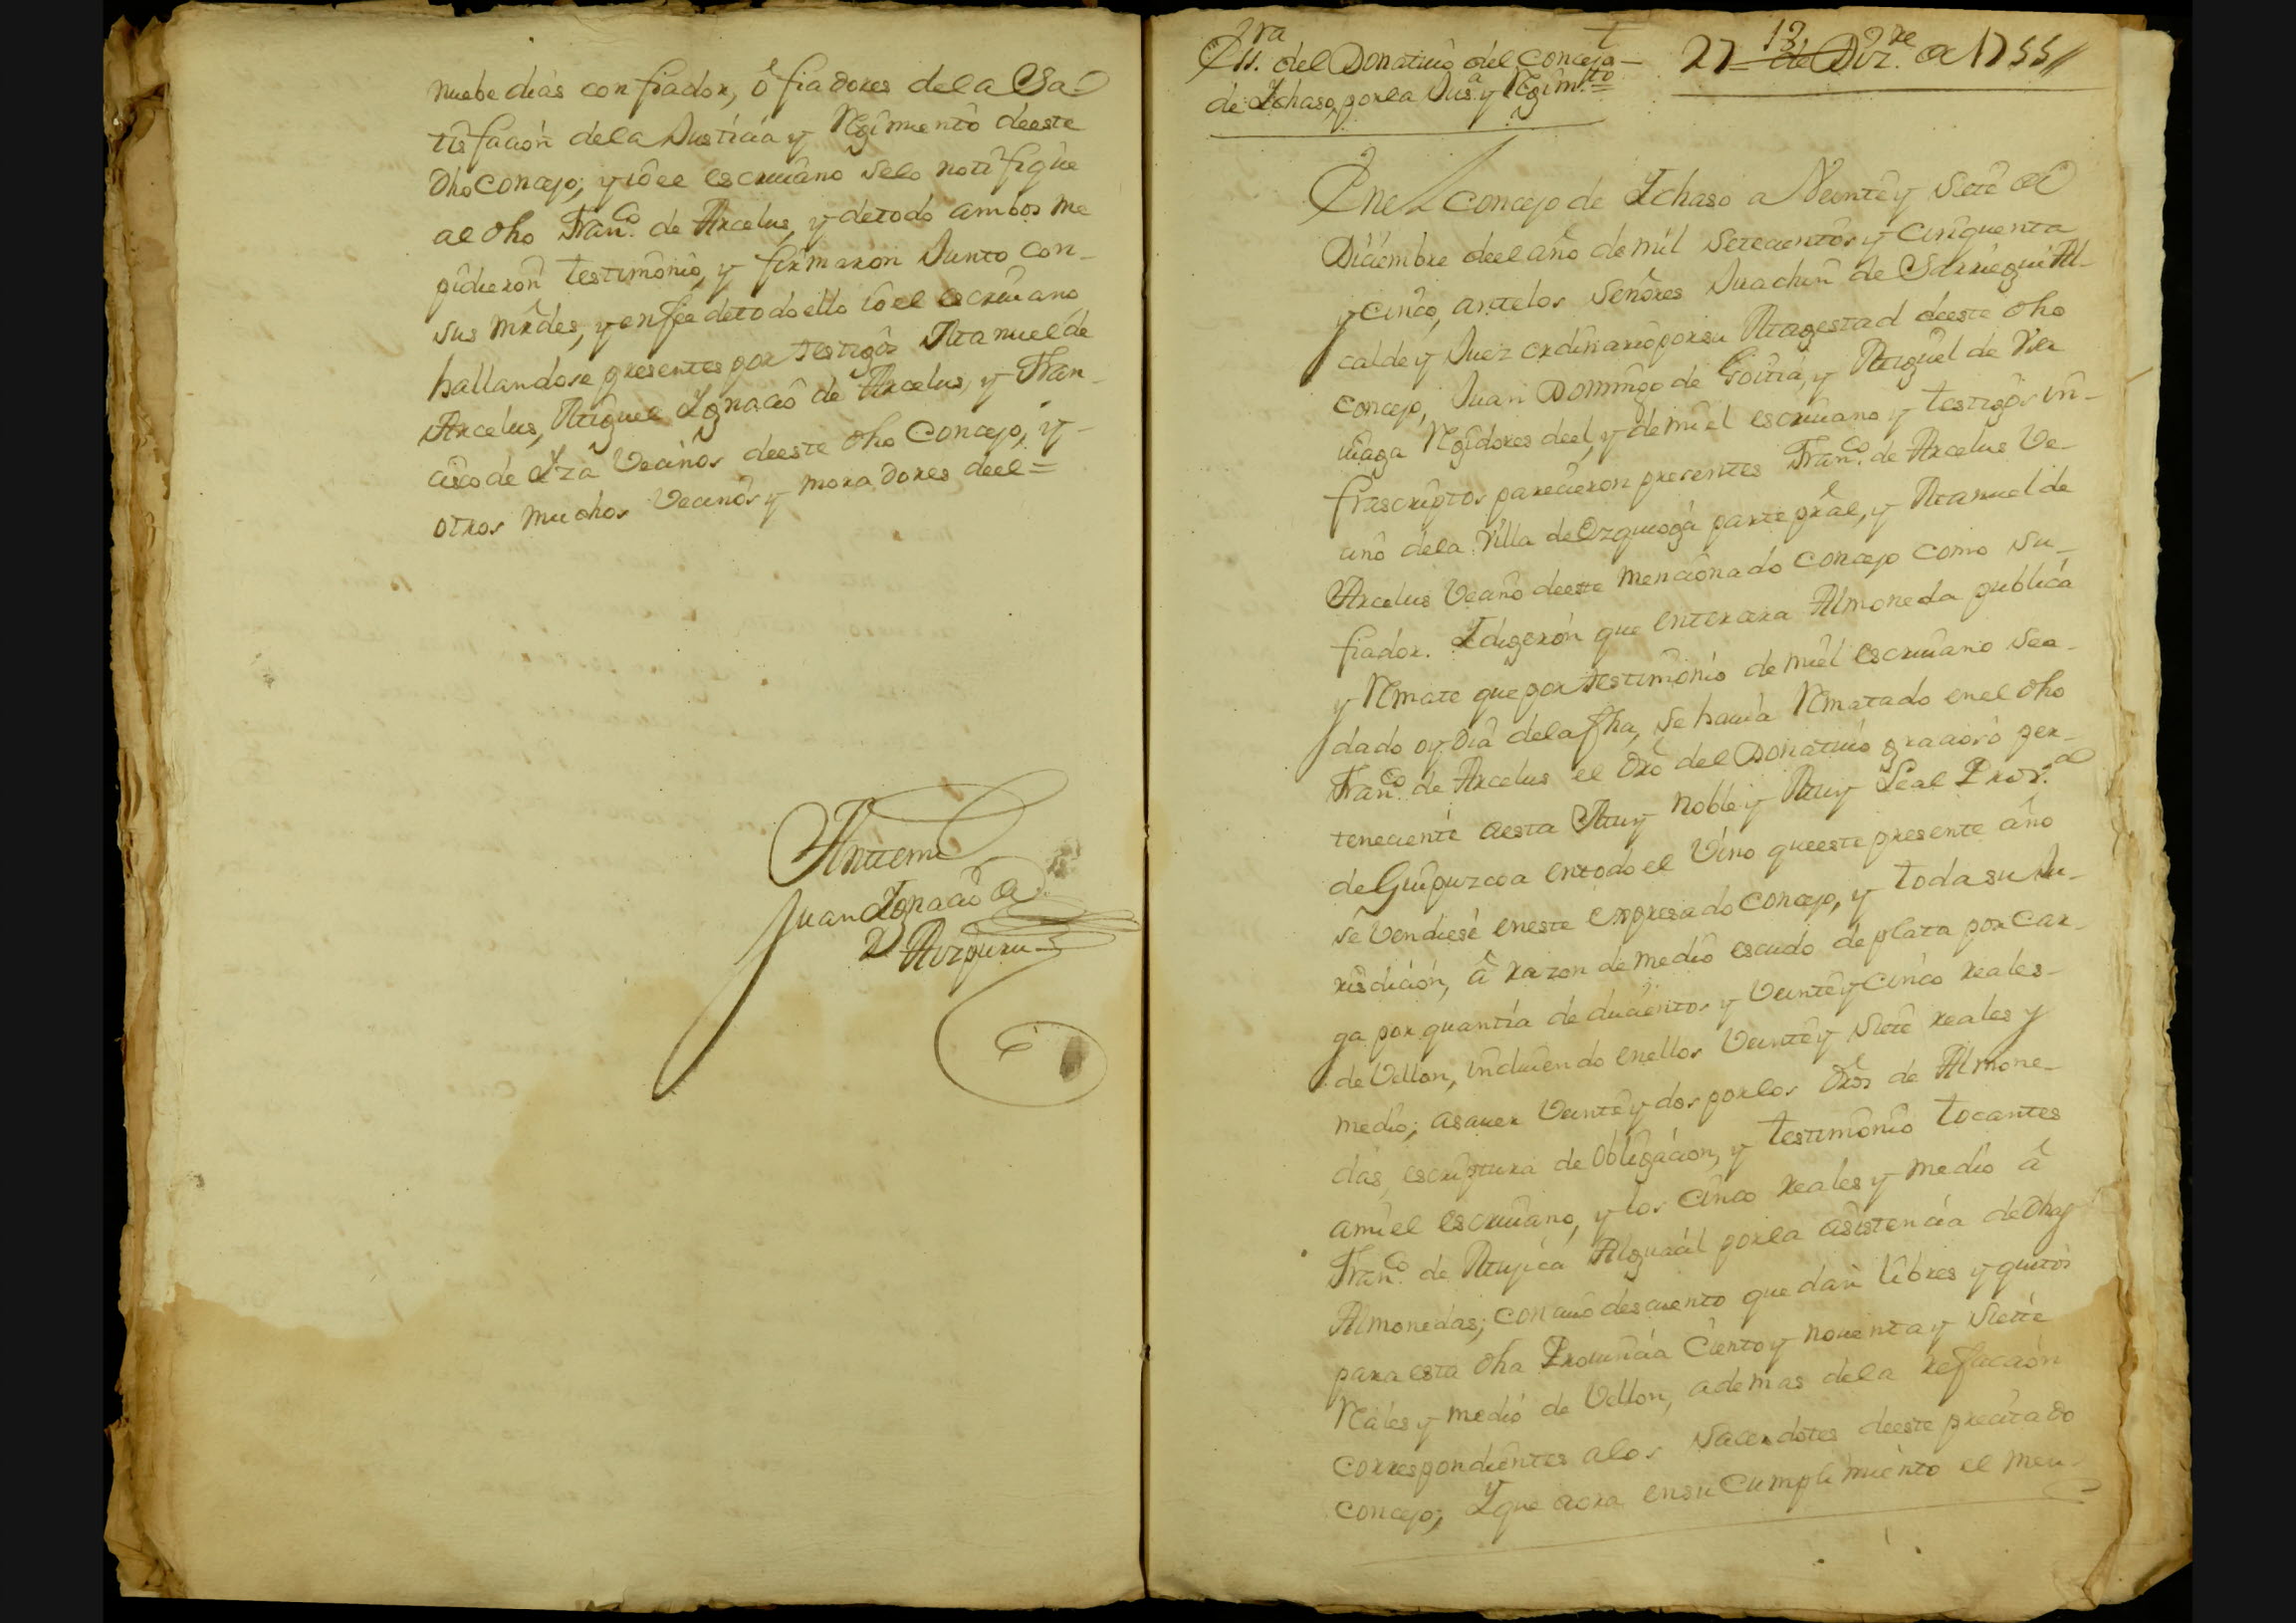 nuebe dias con fiador, ô fiadores dela Sa-
tisfacion dela Justicia y Regimiento deeste
dho Concejo; y io el escriuano selo notifique
al dho Franco. de Arcelus, y detodo ambos me
pidieron testimonio, y firmaron Junto con-
sus mrdes, y enfee detodoello io el escriuano
hallandose presentes por testigos Manuel de
Arcelus, Miguel Ignacio de Arcelus, y Fran-
cisco de Iza Vecinos deeste dho Concejo, y-
otros muchos Vecinos y moradores deel=
Antemi
Juan Ignacio de
Aizpuru
Essra. del Donatiuo del Concejo
de Ichaso, por la Jusa. y Regimto.=
27 de Dizre. de 1755
13
Enel Concejo de Ichaso a Veinte y Siete de
Diciembre deel año de mil Setecientos y Cinquenta
y cinco, antelos Señores Juachin de Sarriegui Al-
calde y Juez ordinario por su Magestad deeste dho
Concejo, Juan Domingo de Goitia, y Miguel de Vic
uñaga Regidores deel, y de mi el escriuano y testigos in-
frascriptos parecieron presentes Franco. de Arcelus Ve-
cino dela Villa de Ezquioga parte pral, y Manuel de
Arcelus Vecino deeste mencionado Concejo como su-
fiador. I digeron que entercera Almoneda publica
y Remate que por testimonio de miel escriuano sea-
dado oy dia dela fha, se hauia Rematado enel dho
Franco. de Arcelus el dro del Donatiuo gracioso per-
teneciente aesta Muy Noble y Muy Leal Prov.a
de Guipuzcoa entodo el Vino queeste presente año
se Vendiese eneste expresado Concejo, y toda su Ju-
risdicion, â razon de medio escudo de plata por Car-
ga por quantia de ducientos y Veinte y Cinco reales-
de Vellon, incluiendo enellos Veinte y Siete reales y
medio; asauer Veinte y dos por los dros de Almone-
das, escriptura de Obligacion, y testimonio tocantes
amiel escriuano, y los Cinco reales y medio â
Franco. de Mujica Alguacil porla asistencia de dhas
Almonedas; con cuio descuento quedan libres y quitos
para esta dha Prouincia Ciento y nouenta y Siete
Reales y medio de Vellon, ademas dela refaccion
correspondientes alos Sacerdotes deeste precitado
Concejo; I que aora ensu Cumplimiento el men-